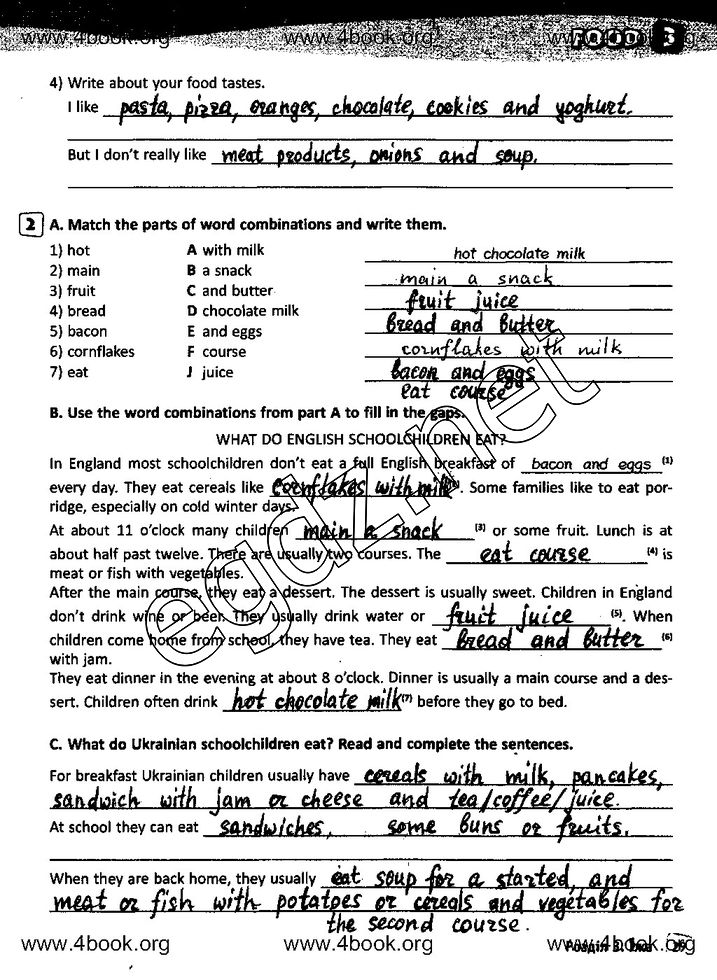 www.4book.org www.4book.org www.4book.org
FOOD 3
4) Write about your food tastes.
I like pasta, pizza, oranges, chocolate, cookies and yoghurt.
But I don't really like meat products, onions and soup.
2 A. Match the parts of word combinations and write them.
1) hot A with milk hot chocolate milk
2) main B a snack main a snack
3) fruit C and butter fruit juice
4) bread D chocolate milk bread and butter
5) bacon E and eggs cornflakes with milk
6) cornflakes F course bacon and eggs
7) eat J juice eat course
B. Use the word combinations from part A to fill in the gaps.
WHAT DO ENGLISH SCHOOLCHILDREN EAT?
In England most schoolchildren don't eat a full English breakfast of bacon and eggs (1)
every day. They eat cereals like cornflakes with milk. Some families like to eat por-
ridge, especially on cold winter days.
At about 11 o'clock many children main a snack (3) or some fruit. Lunch is at
about half past twelve. There are usually two courses. The eat course (4) is
meat or fish with vegetables.
After the main course, they eat a dessert. The dessert is usually sweet. Children in England
don't drink wine or beer. They usually drink water or fruit juice (5). When
children come home from school, they have tea. They eat bread and butter (6)
with jam.
They eat dinner in the evening at about 8 o'clock. Dinner is usually a main course and a des-
sert. Children often drink hot chocolate milk (7) before they go to bed.
C. What do Ukrainian schoolchildren eat? Read and complete the sentences.
For breakfast Ukrainian children usually have cereals with milk, pancakes,
sandwich with jam or cheese and tea/coffee/juice.
At school they can eat sandwiches, some buns or fruits.
When they are back home, they usually eat soup for a started, and
meat or fish with potatoes or cereals and vegetables for
the second course.
www.4book.org www.4book.org www.4book.org
Розділ 3. Їжа 29
egdz.net